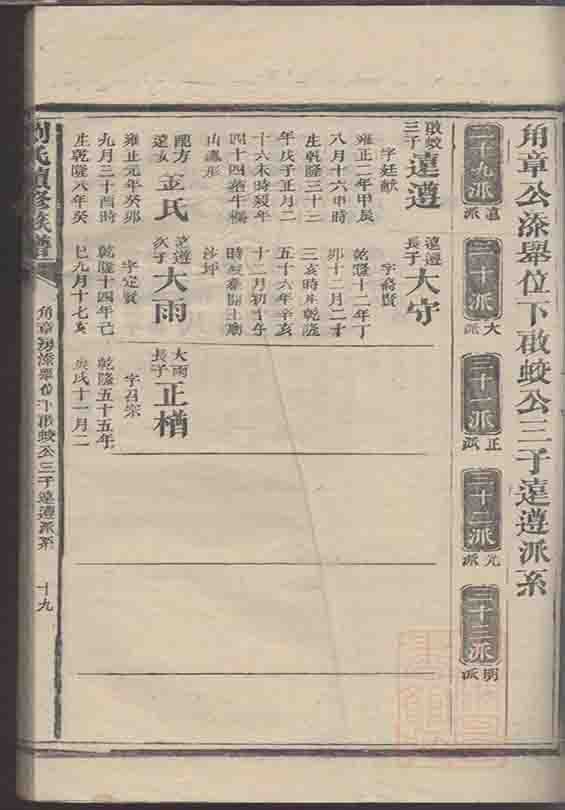 角章公添舉位下敢蛟公三子遠遵派系
二十九派 遠派
三十派 大派
三十一派 正派
三十二派 元派
三十三派 明派
敢蛟三子 遠遵
字廷獻
雍正二年甲辰
八月十六申時
生乾隆三十三
年戊子正月二
十六未時歿年
四十四葬牛欄
山鳳形
配方 金氏
遠女
雍正元年癸卯
九月三十酉時
生乾隆八年癸
遠遵長子 大守
字裔賢
乾隆十二年丁
卯十二月二十
三亥時生乾隆
五十六年辛亥
十二月初十午
時歿葬關王廟
沙坪
遠遵次子 大雨
字定賢
乾隆十四年己
巳九月十七亥
大雨長子 正楢
字召宗
乾隆五十五年
庚戌十一月二
劉氏續修族譜
角章房添舉位下敢蛟公三子遠遵派系
十九